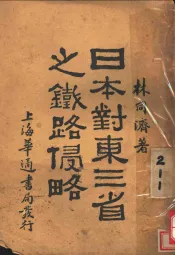 林同濟著
日本對東三省
之鐵路侵略
上海華通書局發行
211